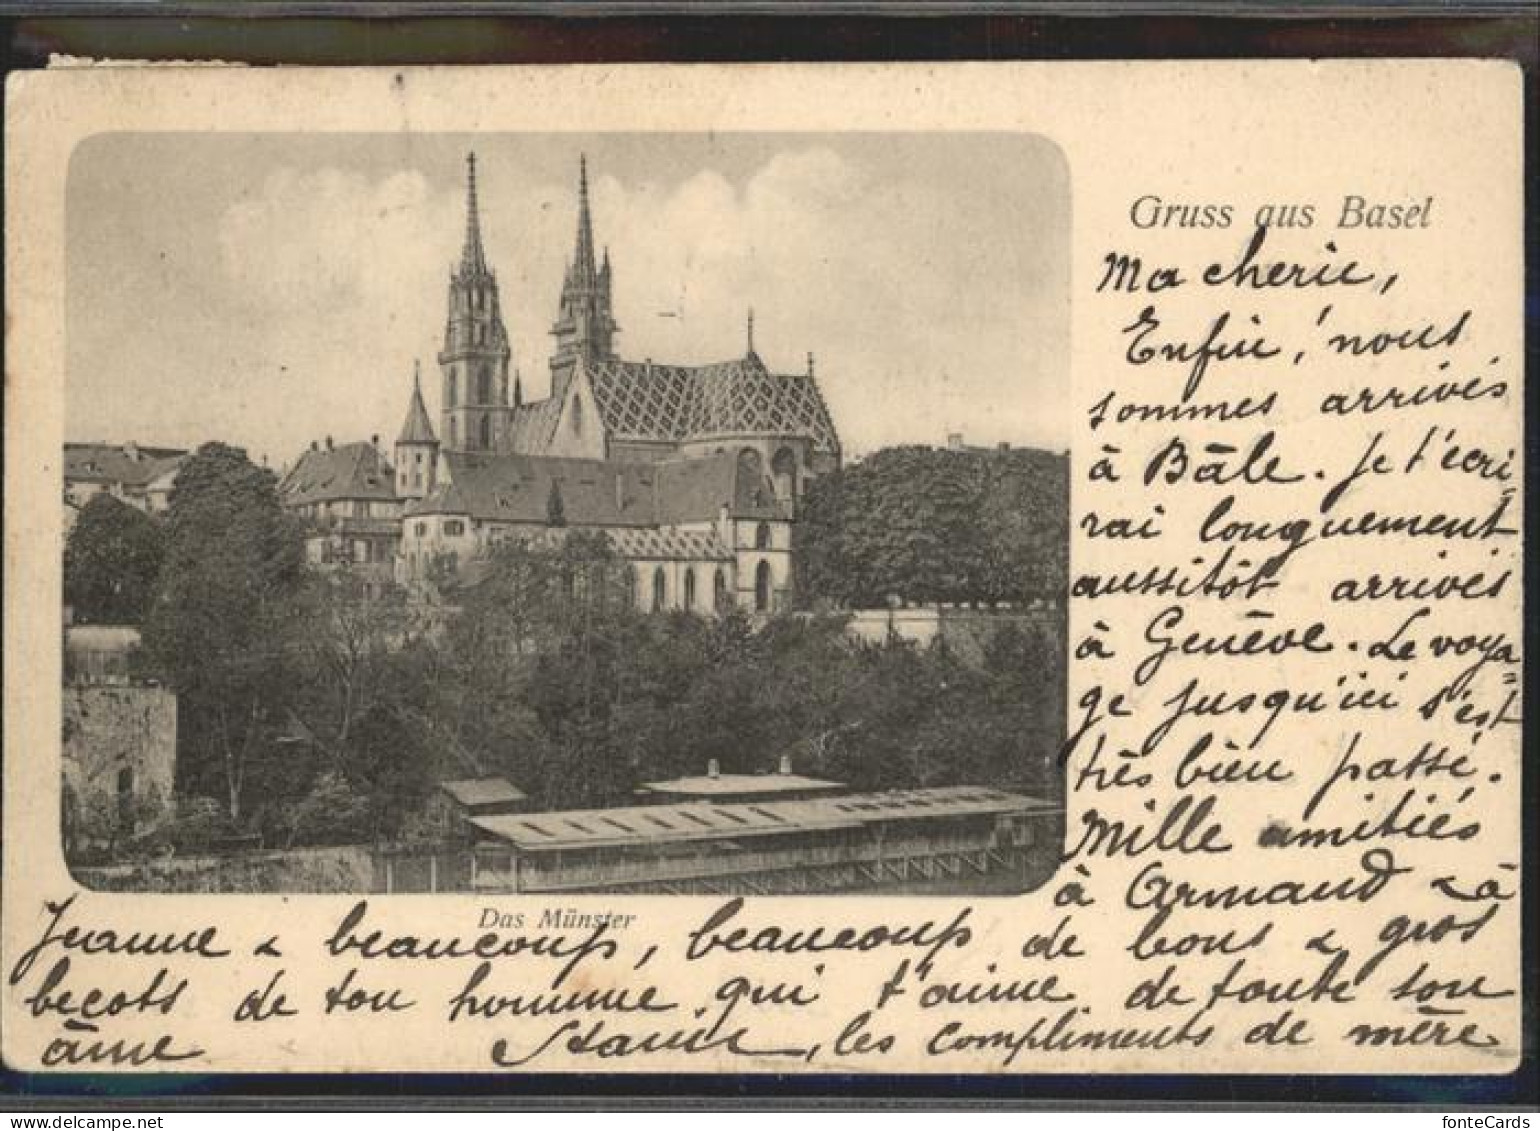 Gruss aus Basel
Ma cherie,
Enfin, nous
sommes arrivés
à Bâle. Je t'écri-
rai longuement
aussitôt arrivés
à Genève. Le voya=
ge jusqu'ici s'est
très bien passé.
Mille amitiés
à Armand & à
Das Münster
Jeanne & beaucoup, beaucoup de bons & gros
becots de ton homme qui t'aime de toute son
âme
les compliments de mère
fonteCards